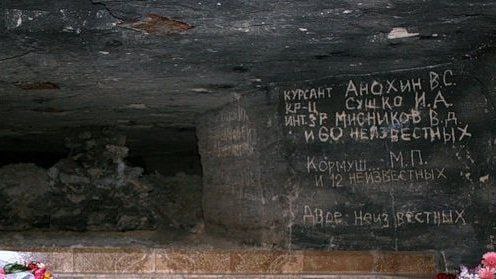 КУРСАНТ АНОХИН В.С.
КР-Ц СУШКО И.А.
ИНТ 3Р МИСНИКОВ В.Д.
и 60 НЕИЗВЕСТНЫХ
КОРМУШ М.П.
и 12 НЕИЗВЕСТНЫХ
ДВОЕ НЕИЗВЕСТНЫХ